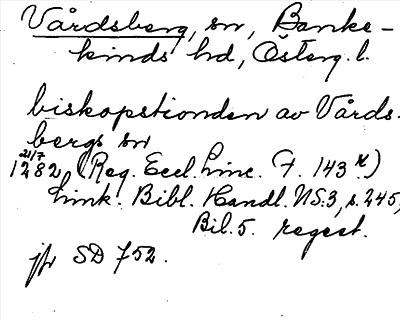 Vårdsberg, sn, Banke-
kinds hd, Österg. l.
biskopstionden av Vårds-
bergs sn
21/7
1282 (Reg. Eccl. Linc. F. 143 r.)
Link. Bibl. Handl. NS:3, s. 245,
Bil. 5. regest.
jfr SD 752.